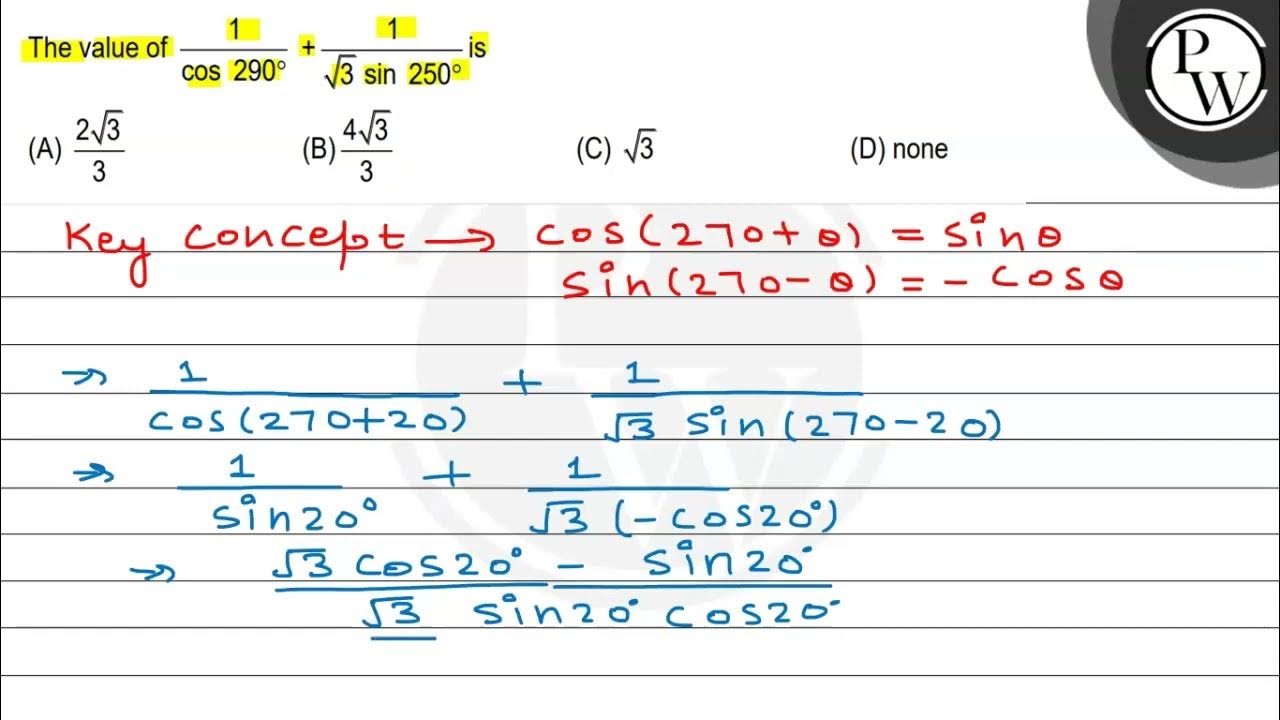 The value of 1/cos 290° + 1/√3 sin 250° is
(A) 2√3/3 (B) 4√3/3 (C) √3 (D) none
Key concept → cos(270+θ) = sinθ
sin(270-θ) = - cosθ
→ 1/cos(270+20) + 1/√3 sin(270-20)
→ 1/sin20° + 1/√3 (-cos20°)
→ √3 cos20° - sin20°/√3 sin20° cos20°
PW